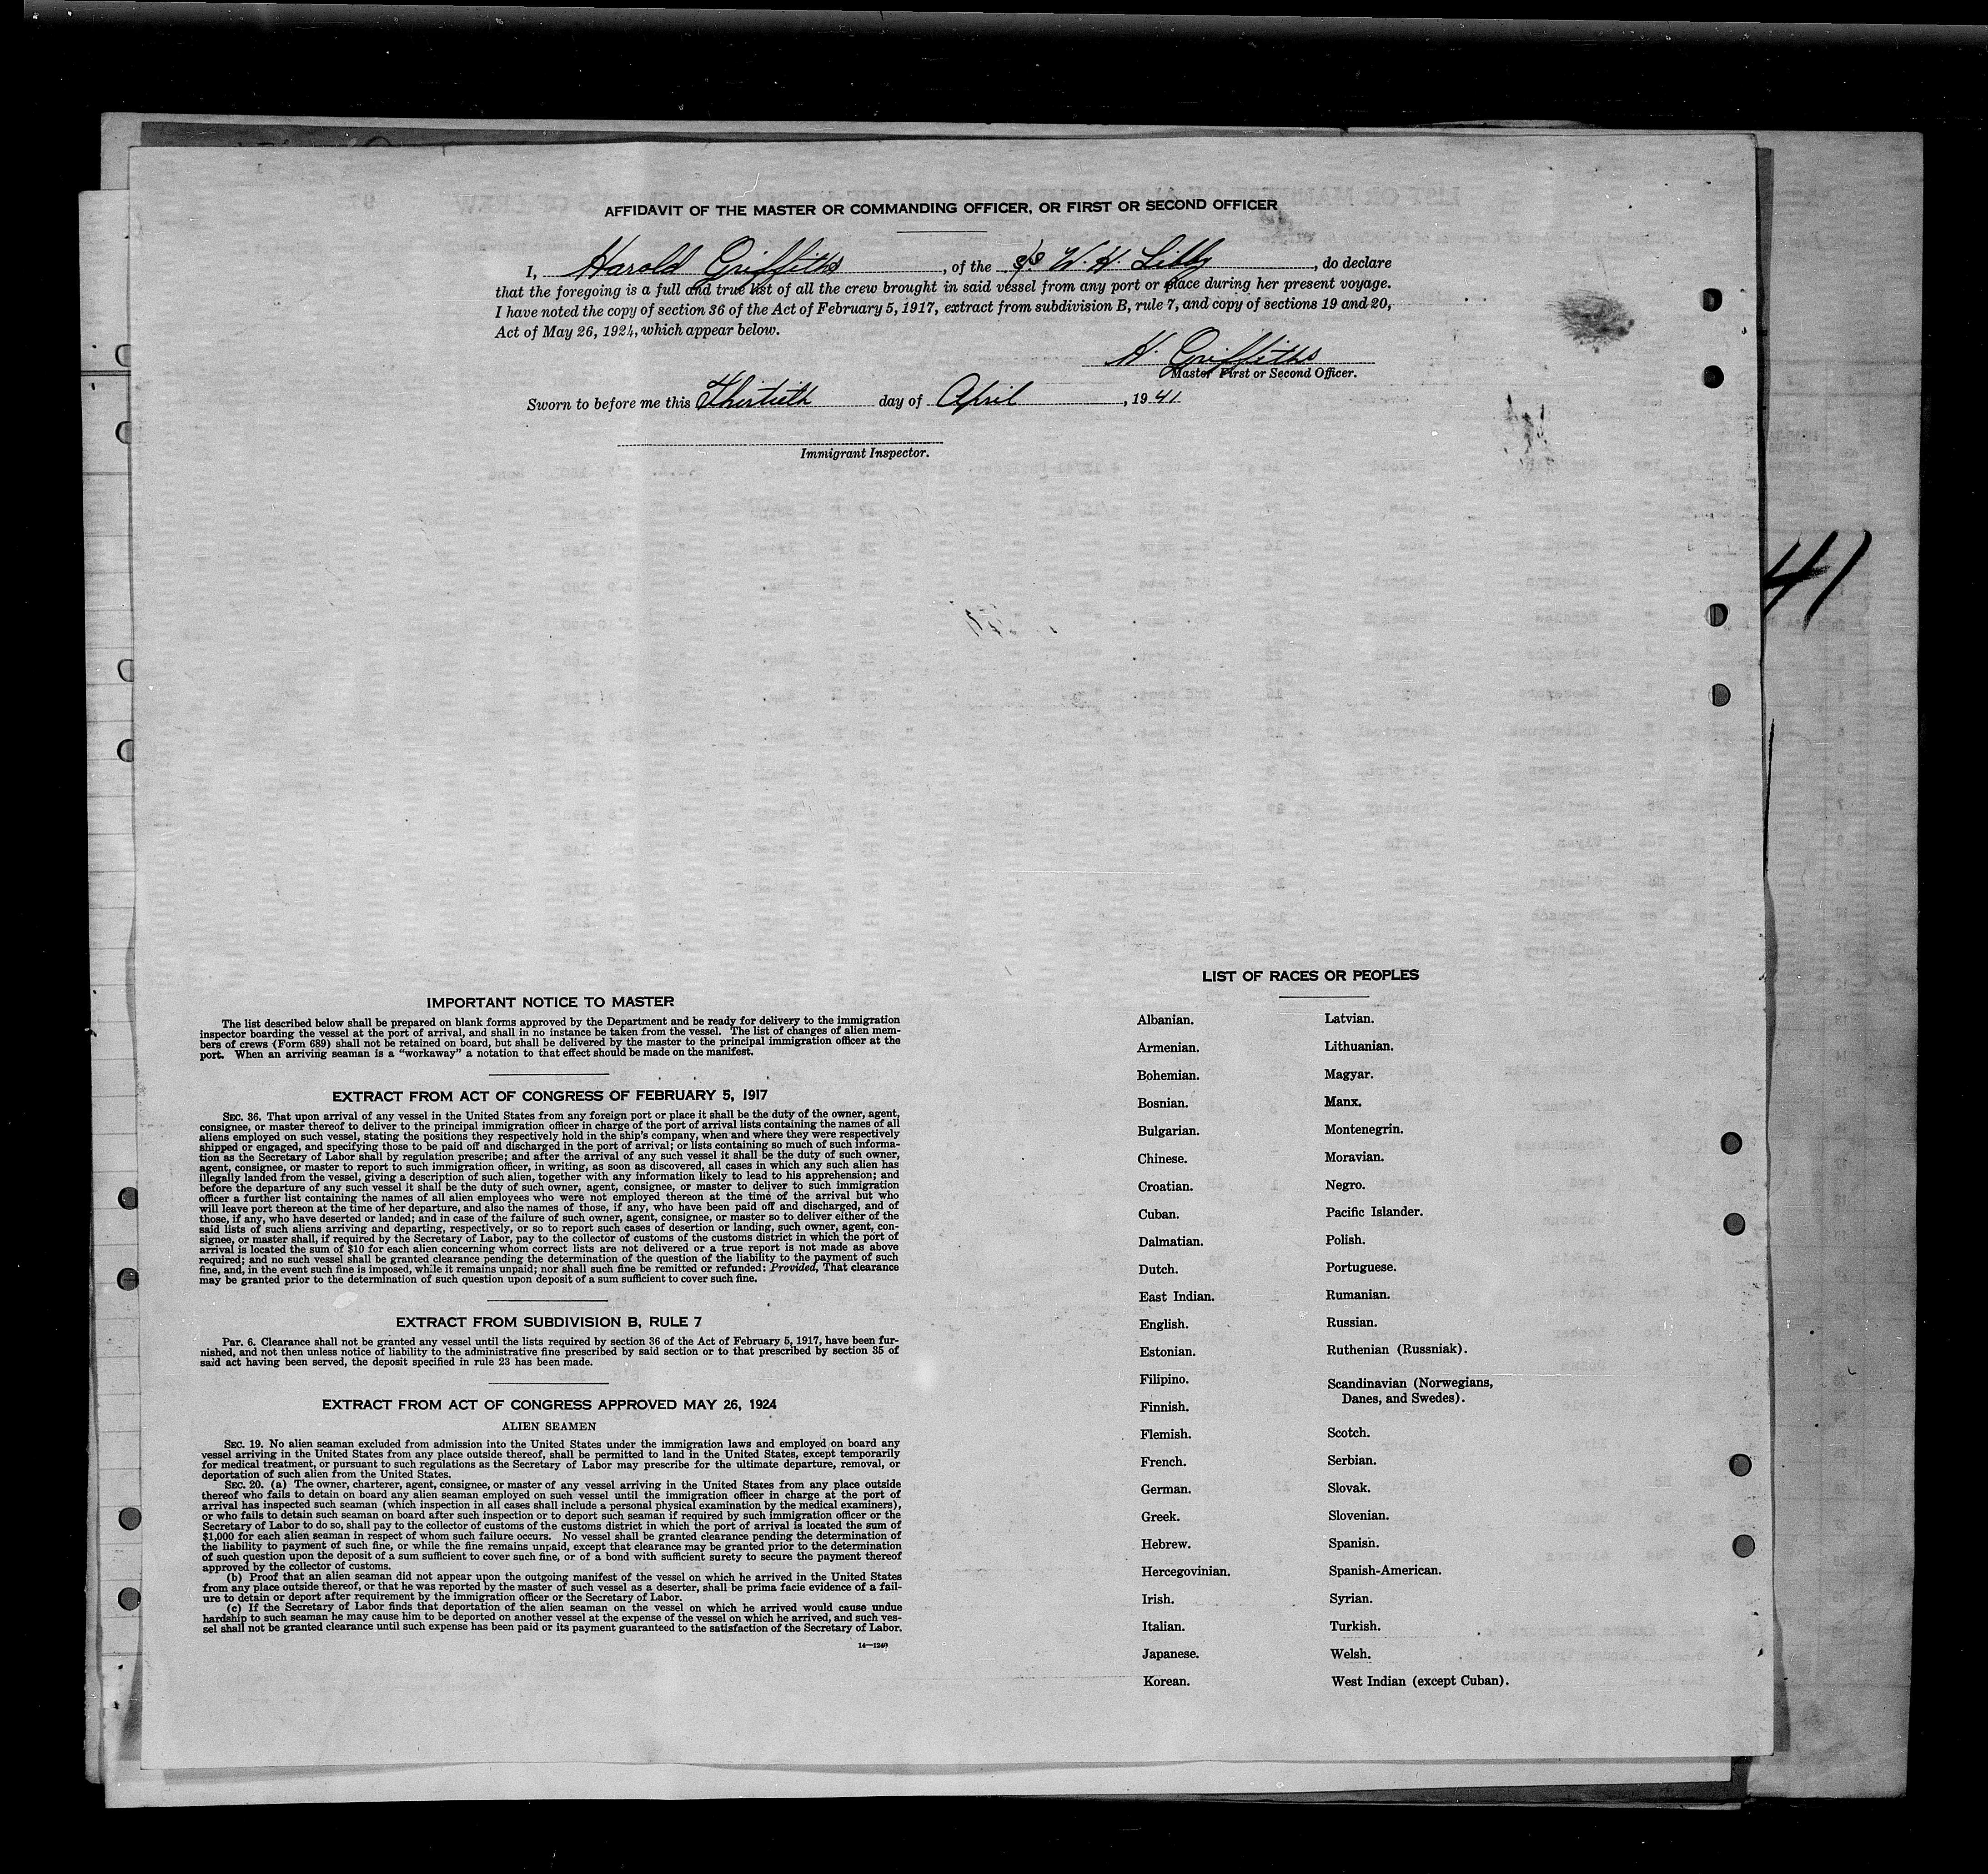 AFFIDAVIT OF THE MASTER OR COMMANDING OFFICER, OR FIRST OR SECOND OFFICER
I, Harold Griffiths, of the S/S W. H. Libby, do declare
that the foregoing is a full and true list of all the crew brought in said vessel from any port or place during her present voyage.
I have noted the copy of section 36 of the Act of February 5, 1917, extract from subdivision B, rule 7, and copy of sections 19 and 20,
Act of May 26, 1924, which appear below.
H. Griffiths
Master First or Second Officer.
Sworn to before me this Thirtieth day of April, 1941
Immigrant Inspector.
41
IMPORTANT NOTICE TO MASTER
The list described below shall be prepared on blank forms approved by the Department and be ready for delivery to the immigration
inspector boarding the vessel at the port of arrival, and shall in no instance be taken from the vessel. The list of changes of alien mem-
bers of crews (Form 689) shall not be retained on board, but shall be delivered by the master to the principal immigration officer at the
port. When an arriving seaman is a "workaway" a notation to that effect should be made on the manifest.
EXTRACT FROM ACT OF CONGRESS OF FEBRUARY 5, 1917
SEC. 36. That upon arrival of any vessel in the United States from any foreign port or place it shall be the duty of the owner, agent,
consignee, or master thereof to deliver to the principal immigration officer in charge of the port of arrival lists containing the names of all
aliens employed on such vessel, stating the positions they respectively hold in the ship's company, when and where they were respectively
shipped or engaged, and specifying those to be paid off and discharged in the port of arrival; or lists containing so much of such informa-
tion as the Secretary of Labor shall by regulation prescribe; and after the arrival of any such vessel it shall be the duty of such owner,
agent, consignee, or master to report to such immigration officer, in writing, as soon as discovered, all cases in which any such alien has
illegally landed from the vessel, giving a description of such alien, together with any information likely to lead to his apprehension; and
before the departure of any such vessel it shall be the duty of such owner, agent, consignee, or master to deliver to such immigration
officer a further list containing the names of all alien employees who were not employed thereon at the time of the arrival but who
will leave port thereon at the time of her departure, and also the names of those, if any, who have been paid off and discharged, and of
those, if any, who have deserted or landed; and in case of the failure of such owner, agent, consignee, or master so to deliver either of the
said lists of such aliens arriving and departing, respectively, or so to report such cases of desertion or landing, such owner, agent, con-
signee, or master shall, if required by the Secretary of Labor, pay to the collector of customs of the customs district in which the port of
arrival is located the sum of $10 for each alien concerning whom correct lists are not delivered or a true report is not made as above
required; and no such vessel shall be granted clearance pending the determination of the question of the liability to the payment of such
fine, and, in the event such fine is imposed, while it remains unpaid; nor shall such fine be remitted or refunded: Provided, That clearance
may be granted prior to the determination of such question upon deposit of a sum sufficient to cover such fine.
EXTRACT FROM SUBDIVISION B, RULE 7
PAR. 6. Clearance shall not be granted any vessel until the lists required by section 36 of the Act of February 5, 1917, have been fur-
nished, and not then unless notice of liability to the administrative fine prescribed by said section or to that prescribed by section 35 of
said act having been served, the deposit specified in rule 23 has been made.
EXTRACT FROM ACT OF CONGRESS APPROVED MAY 26, 1924
ALIEN SEAMEN
SEC. 19. No alien seaman excluded from admission into the United States under the immigration laws and employed on board any
vessel arriving in the United States from any place outside thereof, shall be permitted to land in the United States, except temporarily
for medical treatment, or pursuant to such regulations as the Secretary of Labor may prescribe for the ultimate departure, removal, or
deportation of such alien from the United States.
SEC. 20. (a) The owner, charterer, agent, consignee, or master of any vessel arriving in the United States from any place outside
thereof who fails to detain on board any alien seaman employed on such vessel until the immigration officer in charge at the port of
arrival has inspected such seaman (which inspection in all cases shall include a personal physical examination by the medical examiners),
or who fails to detain such seaman on board after such inspection or to deport such seaman if required by such immigration officer or the
Secretary of Labor to do so, shall pay to the collector of customs of the customs district in which the port of arrival is located the sum of
$1,000 for each alien seaman in respect of whom such failure occurs. No vessel shall be granted clearance pending the determination of
the liability to payment of such fine, or while the fine remains unpaid, except that clearance may be granted prior to the determination
of such question upon the deposit of a sum sufficient to cover such fine, or of a bond with sufficient surety to secure the payment thereof
approved by the collector of customs.
(b) Proof that an alien seaman did not appear upon the outgoing manifest of the vessel on which he arrived in the United States
from any place outside thereof, or that he was reported by the master of such vessel as a deserter, shall be prima facie evidence of a fail-
ure to detain or deport after requirement by the immigration officer or the Secretary of Labor.
(c) If the Secretary of Labor finds that deportation of the alien seaman on the vessel on which he arrived would cause undue
hardship to such seaman he may cause him to be deported on another vessel at the expense of the vessel on which he arrived, and such ves-
sel shall not be granted clearance until such expense has been paid or its payment guaranteed to the satisfaction of the Secretary of Labor.
14—1240
LIST OF RACES OR PEOPLES
Albanian.
Armenian.
Bohemian.
Bosnian.
Bulgarian.
Chinese.
Croatian.
Cuban.
Dalmatian.
Dutch.
East Indian.
English.
Estonian.
Filipino.
Finnish.
Flemish.
French.
German.
Greek.
Hebrew.
Hercegovinian.
Irish.
Italian.
Japanese.
Korean.
Latvian.
Lithuanian.
Magyar.
Manx.
Montenegrin.
Moravian.
Negro.
Pacific Islander.
Polish.
Portuguese.
Rumanian.
Russian.
Ruthenian (Russniak).
Scandinavian (Norwegians,
Danes, and Swedes).
Scotch.
Serbian.
Slovak.
Slovenian.
Spanish.
Spanish-American.
Syrian.
Turkish.
Welsh.
West Indian (except Cuban).